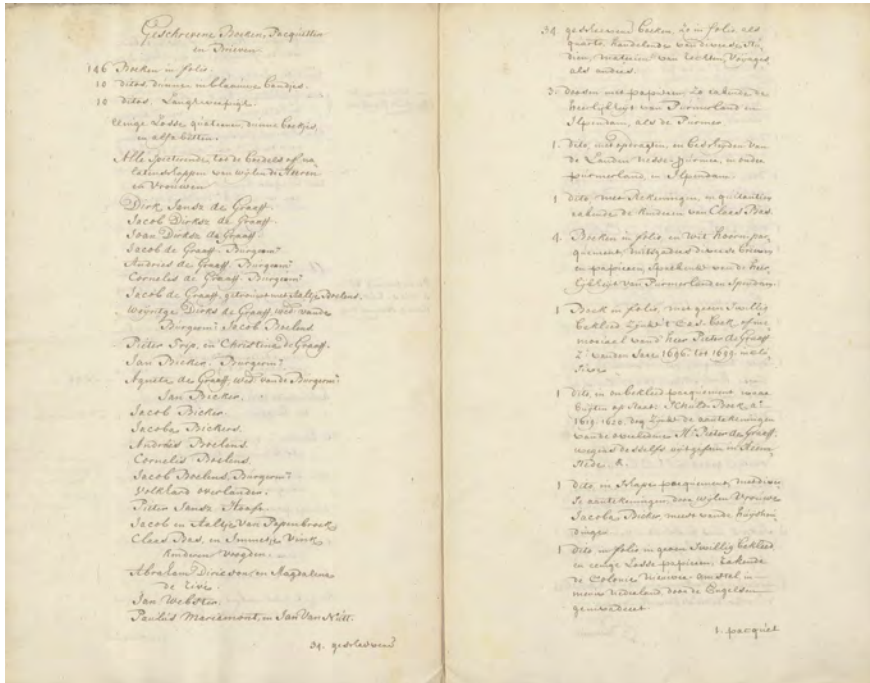 Geschrevene Boeken, Pacquetten
en Brieven
146 Boeken in folio.
10 ditos, dunne in blaauwe bandjes.
10 ditos, Langwerpige.
Eenige Losse quaternen, dunne boekjes,
en alfabetten.
Alle specterende tot de boedels of na
latenschappen van wijlen de Heeren
en Vrouwen
Dirk Jansz de Graeff.
Jacob Dirksz de Graeff.
Jvan Dirksz de Graeff
Jacob de Graeff. Burgerm:
Andries de Graeff. Burgerm:
Cornelis de Graeff. Burgerm:
Jacob de Graeff, getrouwt met Aaltje Boelens.
Weijntge Dirks de Graeff, wed. van de
Burgerm: Jacob Boelens
Pieter Trip, en Christina de Graeff.
Jan Bicker, Burgerm:
Agneta de Graeff, wed. van de Burgerm:
Jan Bicker.
Jacob Bicker.
Jacoba Bickers.
Andries Boelens.
Cornelis Boelens.
Jacob Boelens, Burgerm:
Volkhard overlander.
Pieter Jansz
Jacob en Aaltje Van Papenbroek
Claes Bas, en Immetje Vinck
kinderen voogden.
Abraham Diricson, en Magdalena
de
Jan Webster.
Paulus Mariemont, en Jan Van
34. geschreven
34 geschrevene boeken, zo in folio als
quarto, handelende van diverse
materien van Rechten, Voyages
als anders.
3. doosen met papieren, zo rakende de
heerlijkheyt van Purmerland en
Ilpendam, als de Purmer
1. dito, met opdragten, en bescheyden van
de Landen in de Purmer, en onder
purmerland, en Ilpendam.
1 dito, met Rekeningen, en quitantien
rakende de kinderen van Claes Bas.
4. Boeken in folio, en wit hoorn par,
quement, diverse brieven
en papieren, van de heer,
lijkheyt van Purmerland en Ilpendam.
1 Boek in folio, met groen
bekleed zijnde 't Cas-boek, of me
moriael van d' heer Pieter de Graeff
Z: van den Jaar 1696. tot 1699.
1 dito, in onbekleed pacquement, waar
buyten op staat: Schult-Boek, a:
1619. 1620. dog zijnde de aantekeningen
van de overledene Hr. Pieter de Graeff,
wegens desselfs uytgeven in Heem
stede &.
1 dito in Schaps-pacquement, met diver
se aantekeningen door wijlen Vrouwe
Jacoba Bicker, meest van de huyshou
dinge.
1 dito in folio in groen bekleed
en eenige Losse papieren, rakende
de Colonie Nieuwer-Amstel in
nieuw nederland, door de Engelsen
1. pacquet